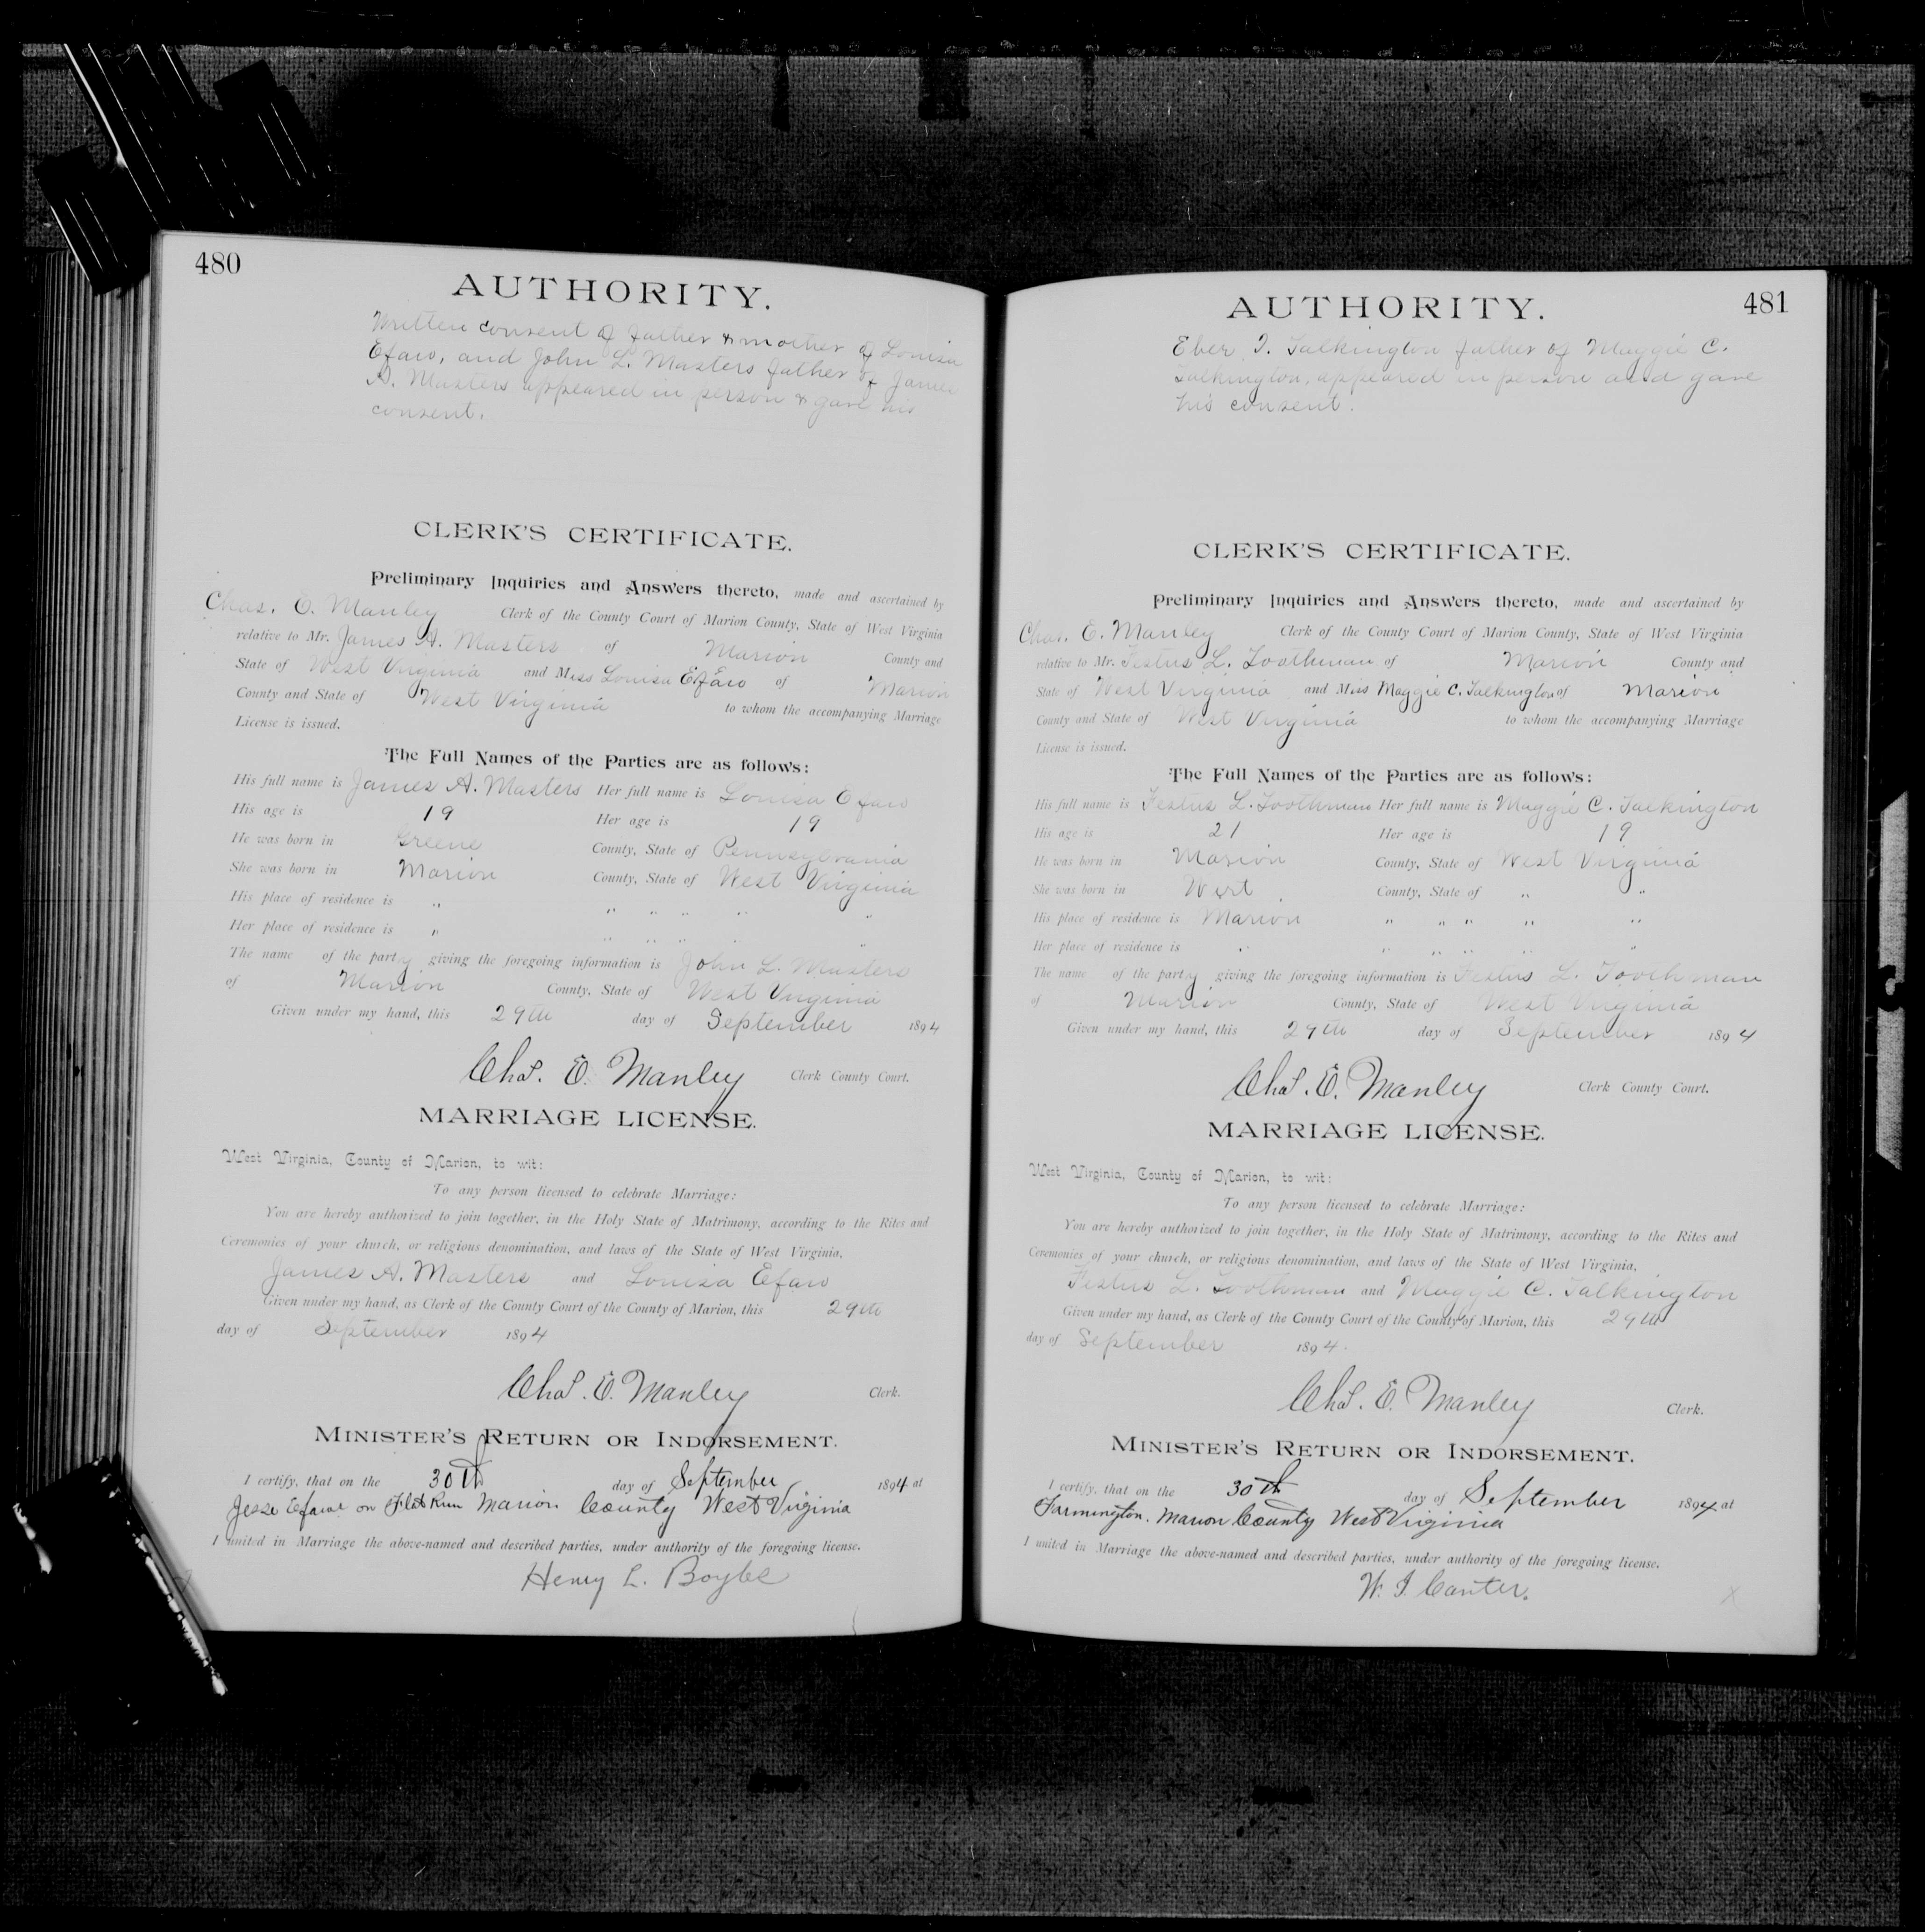 480
AUTHORITY.
Written consent of father & mother of Louisa
Efaw, and John L. Masters father of James
A. Masters appeared in person & gave his
consent.
CLERK'S CERTIFICATE.
Preliminary Inquiries and Answers thereto, made and ascertained by
Chas. E. Manley Clerk of the County Court of Marion County, State of West Virginia
relative to Mr. James A. Masters of Marion County and
State of West Virginia and Miss Louisa Efaw of Marion
County and State of West Virginia to whom the accompanying Marriage
License is issued.
The Full Names of the Parties are as follows:
His full name is James A. Masters Her full name is Louisa Efaw
His age is 19 Her age is 19
He was born in Greene County, State of Pennsylvania
She was born in Marion County, State of West Virginia
His place of residence is " " " " " "
Her place of residence is " " " " " "
The name of the party giving the foregoing information is John L. Masters
of Marion County, State of West Virginia
Given under my hand, this 29th day of September 1894
Chas. E. Manley Clerk County Court.
MARRIAGE LICENSE.
West Virginia, County of Marion, to wit:
To any person licensed to celebrate Marriage:
You are hereby authorized to join together, in the Holy State of Matrimony, according to the Rites and
Ceremonies of your church, or religious denomination, and laws of the State of West Virginia,
James A. Masters and Louisa Efaw
Given under my hand, as Clerk of the County Court of the County of Marion, this 29th
day of September 1894
Chas. E. Manley Clerk.
MINISTER'S RETURN OR INDORSEMENT.
I certify, that on the 30th day of September 1894 at
Jesse Efaw on Flat Run Marion County West Virginia
I united in Marriage the above-named and described parties, under authority of the foregoing license.
Henry L. Boyles
481
AUTHORITY.
Eber T. Talkington father of Maggie C.
Talkington, appeared in person and gave
his consent.
CLERK'S CERTIFICATE.
Preliminary Inquiries and Answers thereto, made and ascertained by
Chas. E. Manley Clerk of the County Court of Marion County, State of West Virginia
relative to Mr. Festus L. Toothman of Marion County and
State of West Virginia and Miss Maggie C. Talkington of Marion
County and State of West Virginia to whom the accompanying Marriage
License is issued.
The Full Names of the Parties are as follows:
His full name is Festus L. Toothman Her full name is Maggie C. Talkington
His age is 21 Her age is 19
He was born in Marion County, State of West Virginia
She was born in Wirt County, State of " "
His place of residence is Marion " " " " "
Her place of residence is " " " " " "
The name of the party giving the foregoing information is Festus L. Toothman
of Marion County, State of West Virginia
Given under my hand, this 29th day of September 1894
Chas. E. Manley Clerk County Court.
MARRIAGE LICENSE.
West Virginia, County of Marion, to wit:
To any person licensed to celebrate Marriage:
You are hereby authorized to join together, in the Holy State of Matrimony, according to the Rites and
Ceremonies of your church, or religious denomination, and laws of the State of West Virginia,
Festus L. Toothman and Maggie C. Talkington
Given under my hand, as Clerk of the County Court of the County of Marion, this 29th
day of September 1894.
Chas. E. Manley Clerk.
MINISTER'S RETURN OR INDORSEMENT.
I certify, that on the 30th day of September 1894 at
Farmington, Marion County West Virginia
I united in Marriage the above-named and described parties, under authority of the foregoing license.
W. I. Canter.